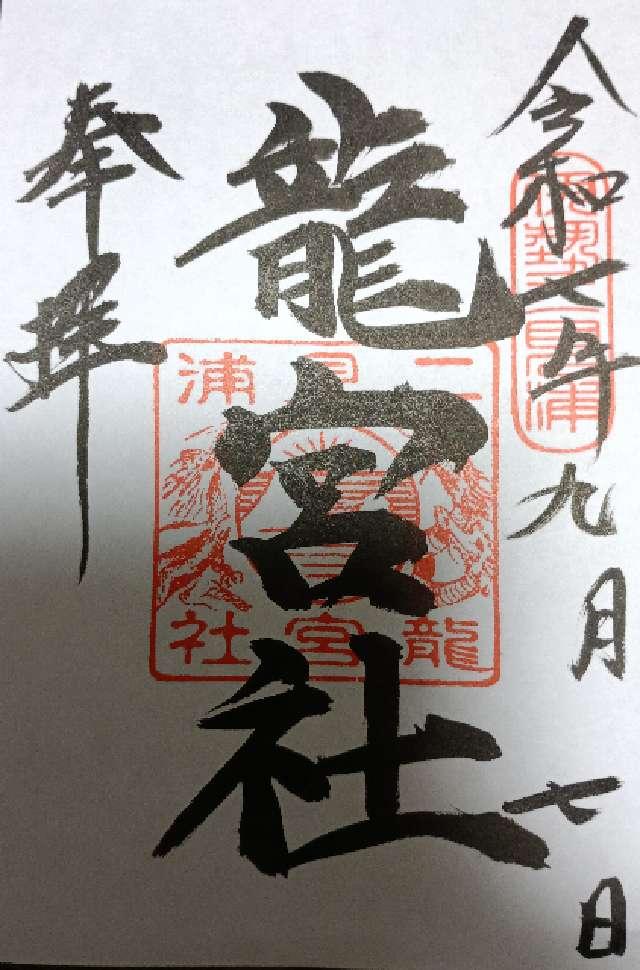 令和七年九月七日
伊勢二見浦
龍宮社
二見浦
龍宮社
奉拝